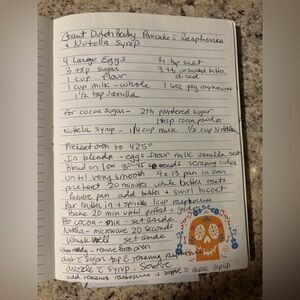 Giant Dutch Baby Pancake c Raspberries
+ Nutella Syrup
4 Large Eggs 1/4 tsp salt
3 tsp sugar 3 tb unsalted butter
1 cup flour diced
1 cup milk - whole 1 6oz pkg raspberries
1 1/2 tsp vanilla
for cocoa sugar - 2 tb powdered sugar
1 tbsp cocoa powder
Nutella Syrup - 1/4 cup milk 1/2 cup Nutella
Preheat oven to 425°
In blender - eggs flour milk vanilla salt
Blend on low 30-45 seconds scraping sides
Until very smooth 9 x 13 pan in oven
preheat 20 minutes while batter rests
remove pan add butter + swirl to coat
Pour batter in + sprinkle 1 cup raspberries
Bake 20 min until puffed + golden
For cocoa - mix - set aside
Nutella - microwave 20 seconds
Whisk well set aside
When ready - remove from oven
dust c sugar top c remaining raspberries
drizzle c syrup. Serve
add remaining raspberries + serve c extra syrup